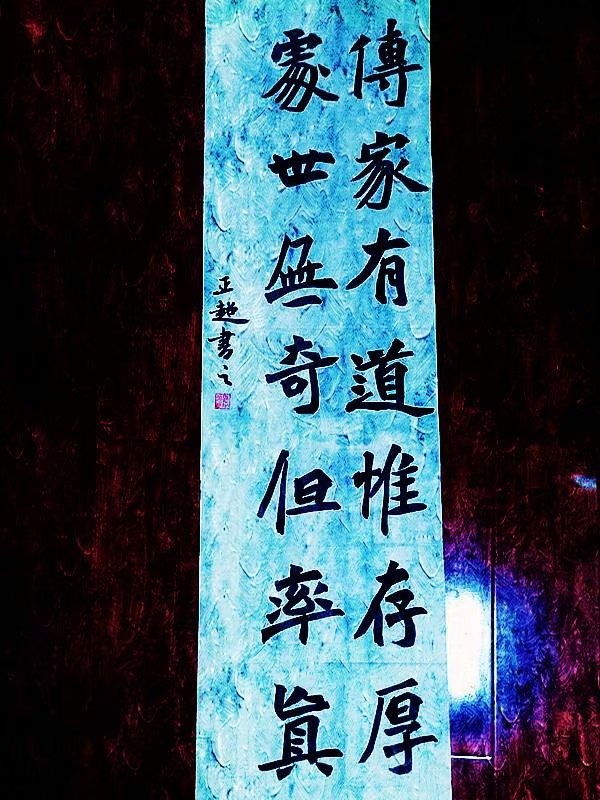 傳家有道惟存厚
處世無奇但率真
正超書之